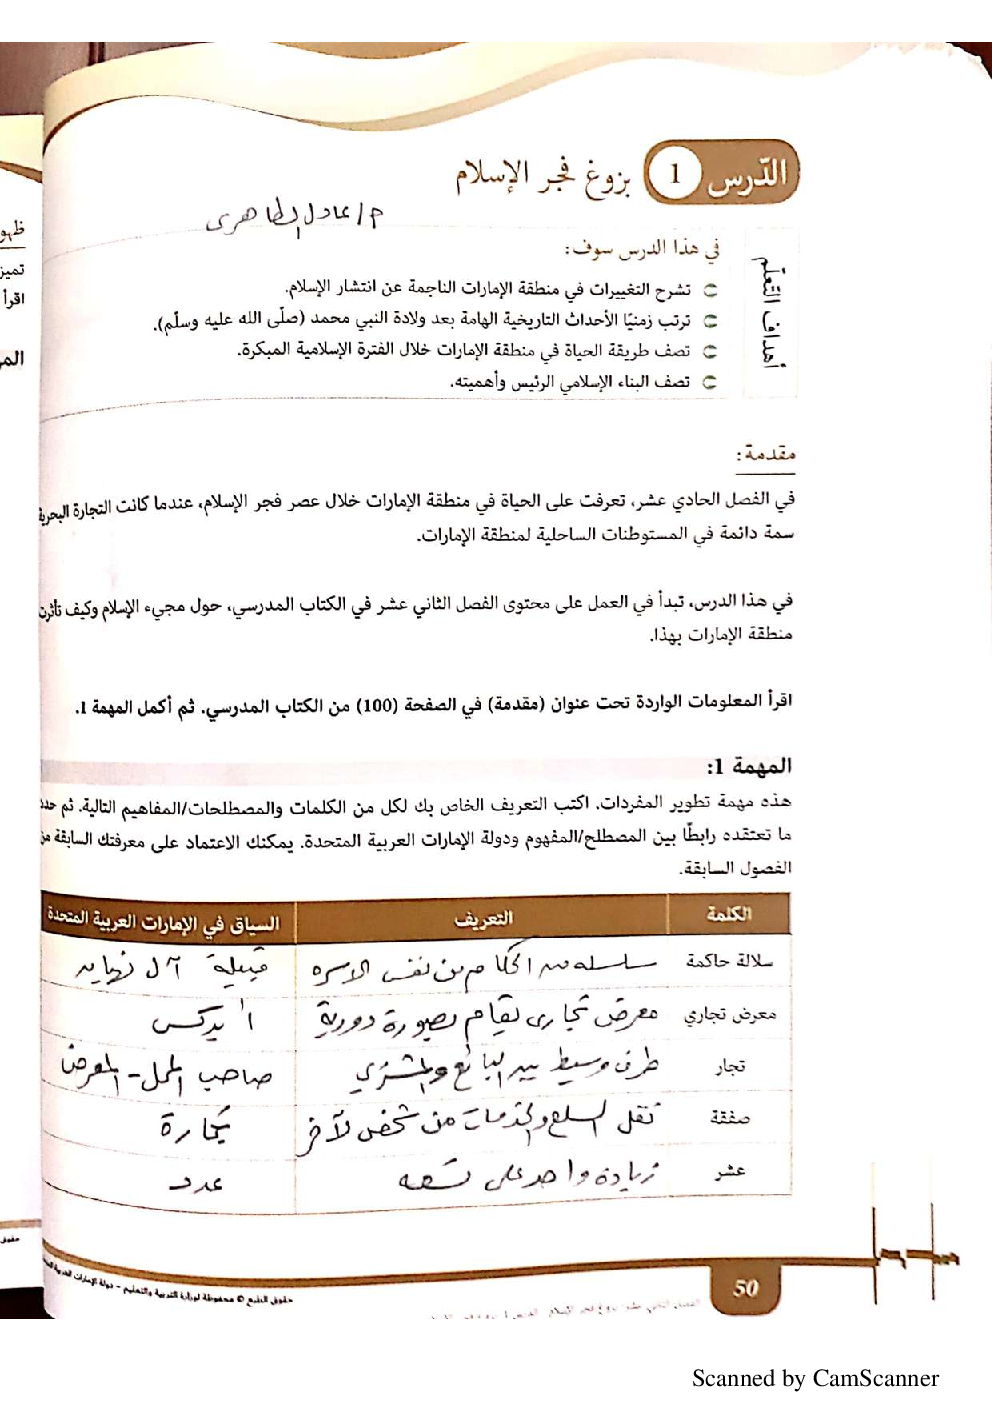 الدّرس 1 بزوغ فجر الإسلام
م/عادل الظاهرى
أهداف التّعلّم
في هذا الدرس سوف:
تشرح التغييرات في منطقة الإمارات الناجمة عن انتشار الإسلام.
ترتب زمنيًا الأحداث التاريخية الهامة بعد ولادة النبي محمد (صلّى الله عليه وسلّم).
تصف طريقة الحياة في منطقة الإمارات خلال الفترة الإسلامية المبكرة.
تصف البناء الإسلامي الرئيس وأهميته.
مقدمة:
في الفصل الحادي عشر، تعرفت على الحياة في منطقة الإمارات خلال عصر فجر الإسلام، عندما كانت التجارة البحرية
سمة دائمة في المستوطنات الساحلية لمنطقة الإمارات.
في هذا الدرس، تبدأ في العمل على محتوى الفصل الثاني عشر في الكتاب المدرسي، حول مجيء الإسلام وكيف تأثرت
منطقة الإمارات بهذا.
اقرأ المعلومات الواردة تحت عنوان (مقدمة) في الصفحة (100) من الكتاب المدرسي. ثم أكمل المهمة 1.
المهمة 1:
هذه مهمة تطوير المفردات. اكتب التعريف الخاص بك لكل من الكلمات والمصطلحات/المفاهيم التالية. ثم حدد
ما تعتقده رابطًا بين المصطلح/المفهوم ودولة الإمارات العربية المتحدة. يمكنك الاعتماد على معرفتك السابقة من
الفصول السابقة.
الكلمة التعريف السياق في الإمارات العربية المتحدة
سلالة حاكمة سلسله من الحكام من نفس الاسره قبيلة آل نهيان
معرض تجاري معرض تجارى يقام بصورة دورية
تجار طرف وسيط بين البائع والمشتري صاحب المحل - المعرض
صفقة نقل السلع والخدمات من شخص لآخر تجارة
عشر زيادة واحد على تسعه عدد
حقوق الطبع © محفوظة لوزارة التربية والتعليم - دولة الإمارات العربية
50
ظهو
تميز
اقرأ
المه
حقوق
Scanned by CamScanner